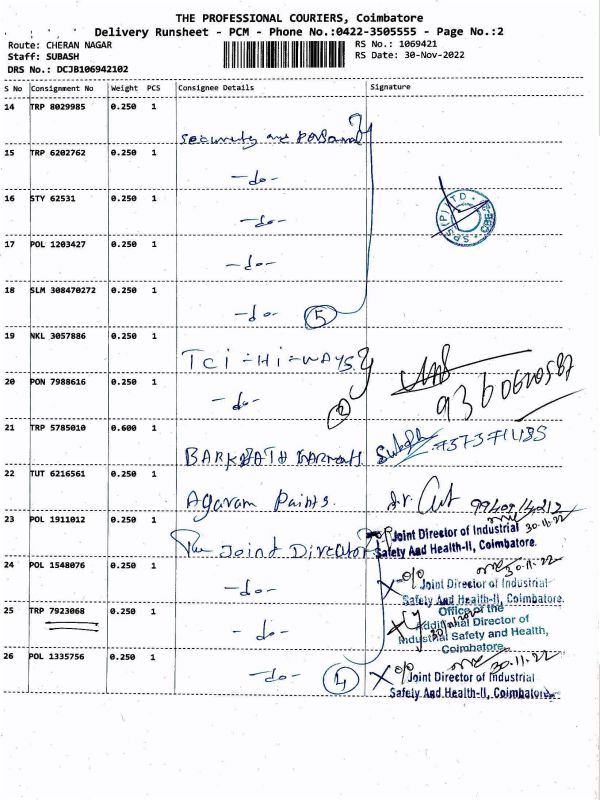 THE PROFESSIONAL COURIERS, Coimbatore
Delivery Runsheet - PCM - Phone No.:0422-3505555 - Page No.:2
Route: CHERAN NAGAR
RS No.: 1069421
Staff: SUBASH
RS Date: 30-Nov-2022
DRS No.: DCJB106942102
S No Consignment No Weight PCS Consignee Details Signature
14 TRP 8029985 0.250 1
Security and Personal
15 TRP 6202762 0.250 1
-do-
16 STY 62531 0.250 1
-do-
S.P.S (P) LTD CBE
17 POL 1203427 0.250 1
-do-
18 SLM 308470272 0.250 1
-do- 5
19 NKL 3057886 0.250 1
Tci-Hi-WAYS
20 PON 7988616 0.250 1
-do- 2
9360620587
21 TRP 5785010 0.600 1
Subash
22 TUT 6216561 0.250 1
Agaram Paints.
23 POL 1911012 0.250 1
The Joint Director
30.11.22
Joint Director of Industrial
Safety And Health-II, Coimbatore.
24 POL 1548076 0.250 1
-do-
30.11.22
o/o Joint Director of Industrial
Safety And Health-II, Coimbatore.
25 TRP 7923068 0.250 1
-do-
Office of the
Additional Director of
Industrial Safety and Health,
Coimbatore
26 POL 1335756 0.250 1
-do- 4
30.11.22
o/o Joint Director of Industrial
Safety And Health-II, Coimbatore.